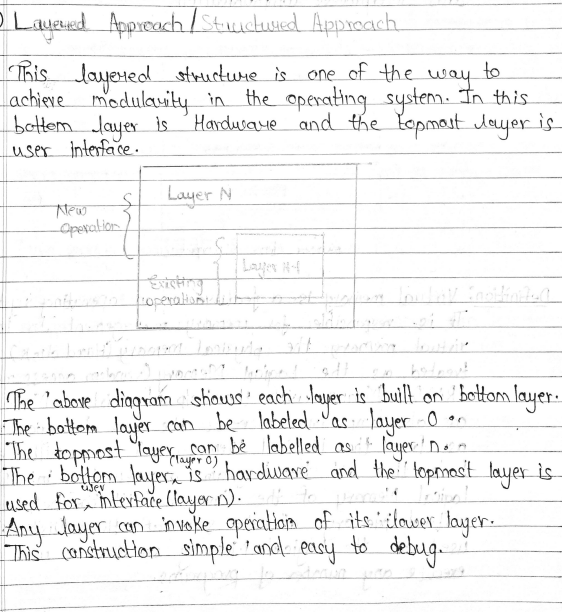 Layered Approach / Structured Approach
This layered structure is one of the way to
achieve modularity in the operating system. In this
bottom layer is Hardware and the topmost layer is
user interface.
Layer N
New
operation
Layer N-1
Existing
operation
The above diagram shows each layer is built on bottom layer.
The bottom layer can be labeled as layer 0.
The topmost layer can be labelled as layer n.
The bottom layer (layer 0) is hardware and the topmost layer is
used for user interface (layer n).
Any layer can invoke operation of its lower layer.
This construction simple and easy to debug.